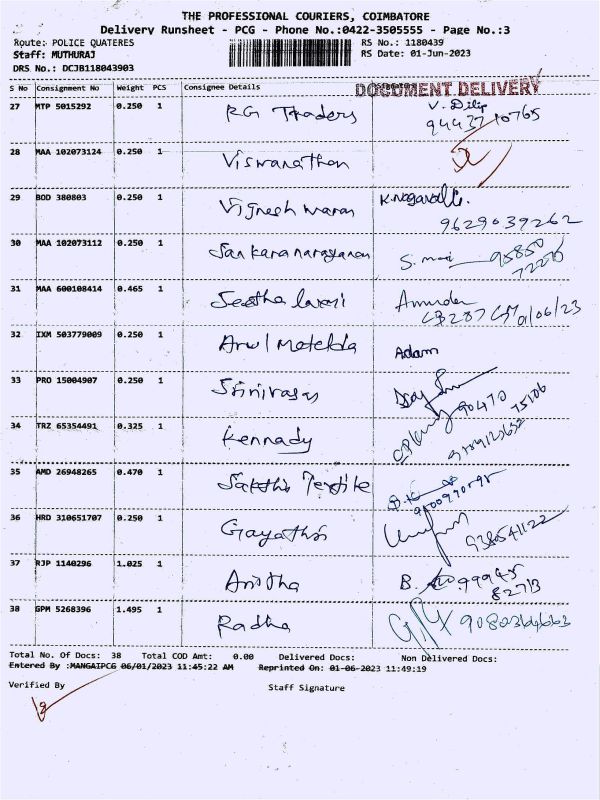 THE PROFESSIONAL COURIERS, COIMBATORE
Delivery Runsheet - PCG - Phone No.:0422-3505555 - Page No.:3
Route: POLICE QUATERES RS No.: 1180439
Staff: MUTHURAJ RS Date: 01-Jun-2023
DRS No.: DCJB118043903
S No Consignment No Weight PCS Consignee Details
DOCUMENT DELIVERY
27 MTP 5015292 0.250 1 RG Traders V. Dilip
9443710765
28 MAA 102073124 0.250 1 Viswanathan
29 BOD 380803 0.250 1 Vignesh waran
9629039262
30 MAA 102073112 0.250 1 Sankaranarayanan S. mani 95850
31 MAA 600108414 0.465 1 Seetha laxmi
01/06/23
32 IXM 503779009 0.250 1 Arul Adam
33 PRO 15004907 0.250 1 Srinivasan
90470 75106
34 TRZ 65354491 0.325 1 Kennady
35 AMD 26948265 0.470 1 Sakthi Textile
36 HRD 310651707 0.250 1 Gayathri
9380541122
37 RJP 1140296 1.025 1 Anitha B. 99945
82713
38 GPM 5268396 1.495 1 Radha
Total No. Of Docs: 38 Total COD Amt: 0.00 Delivered Docs: Non Delivered Docs:
Entered By :MANGAIPCG 06/01/2023 11:45:22 AM Reprinted On: 01-06-2023 11:49:19
Verified By Staff Signature